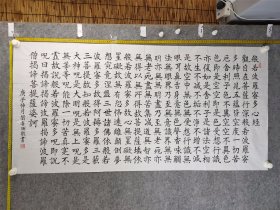 般若波羅蜜多心經
觀自在菩薩行深般若波羅蜜
多時照見五蘊皆空度一切苦
厄舍利子色不異空空不異色
色即是空空即是色受想行識
亦復如是舍利子是諸法空相
不生不滅不垢不淨不增不減
是故空中無色無受想行識無
眼耳鼻舌身意無色聲香味觸
法無眼界乃至無意識界無無
明亦無無明盡乃至無老死亦
無老死盡無苦集滅道無智亦
無得以無所得故菩提薩埵依
般若波羅蜜多故心無罣礙無
罣礙故無有恐怖遠離顛倒夢
想究竟涅槃三世諸佛依般若
波羅蜜多故得阿耨多羅三藐
三菩提故知般若波羅蜜多是
大神咒是大明咒是無上咒是
無等等咒能除一切苦真實不
虛故說般若波羅蜜多咒即說
咒曰揭諦揭諦波羅揭諦波羅
僧揭諦菩提薩婆訶
庚子